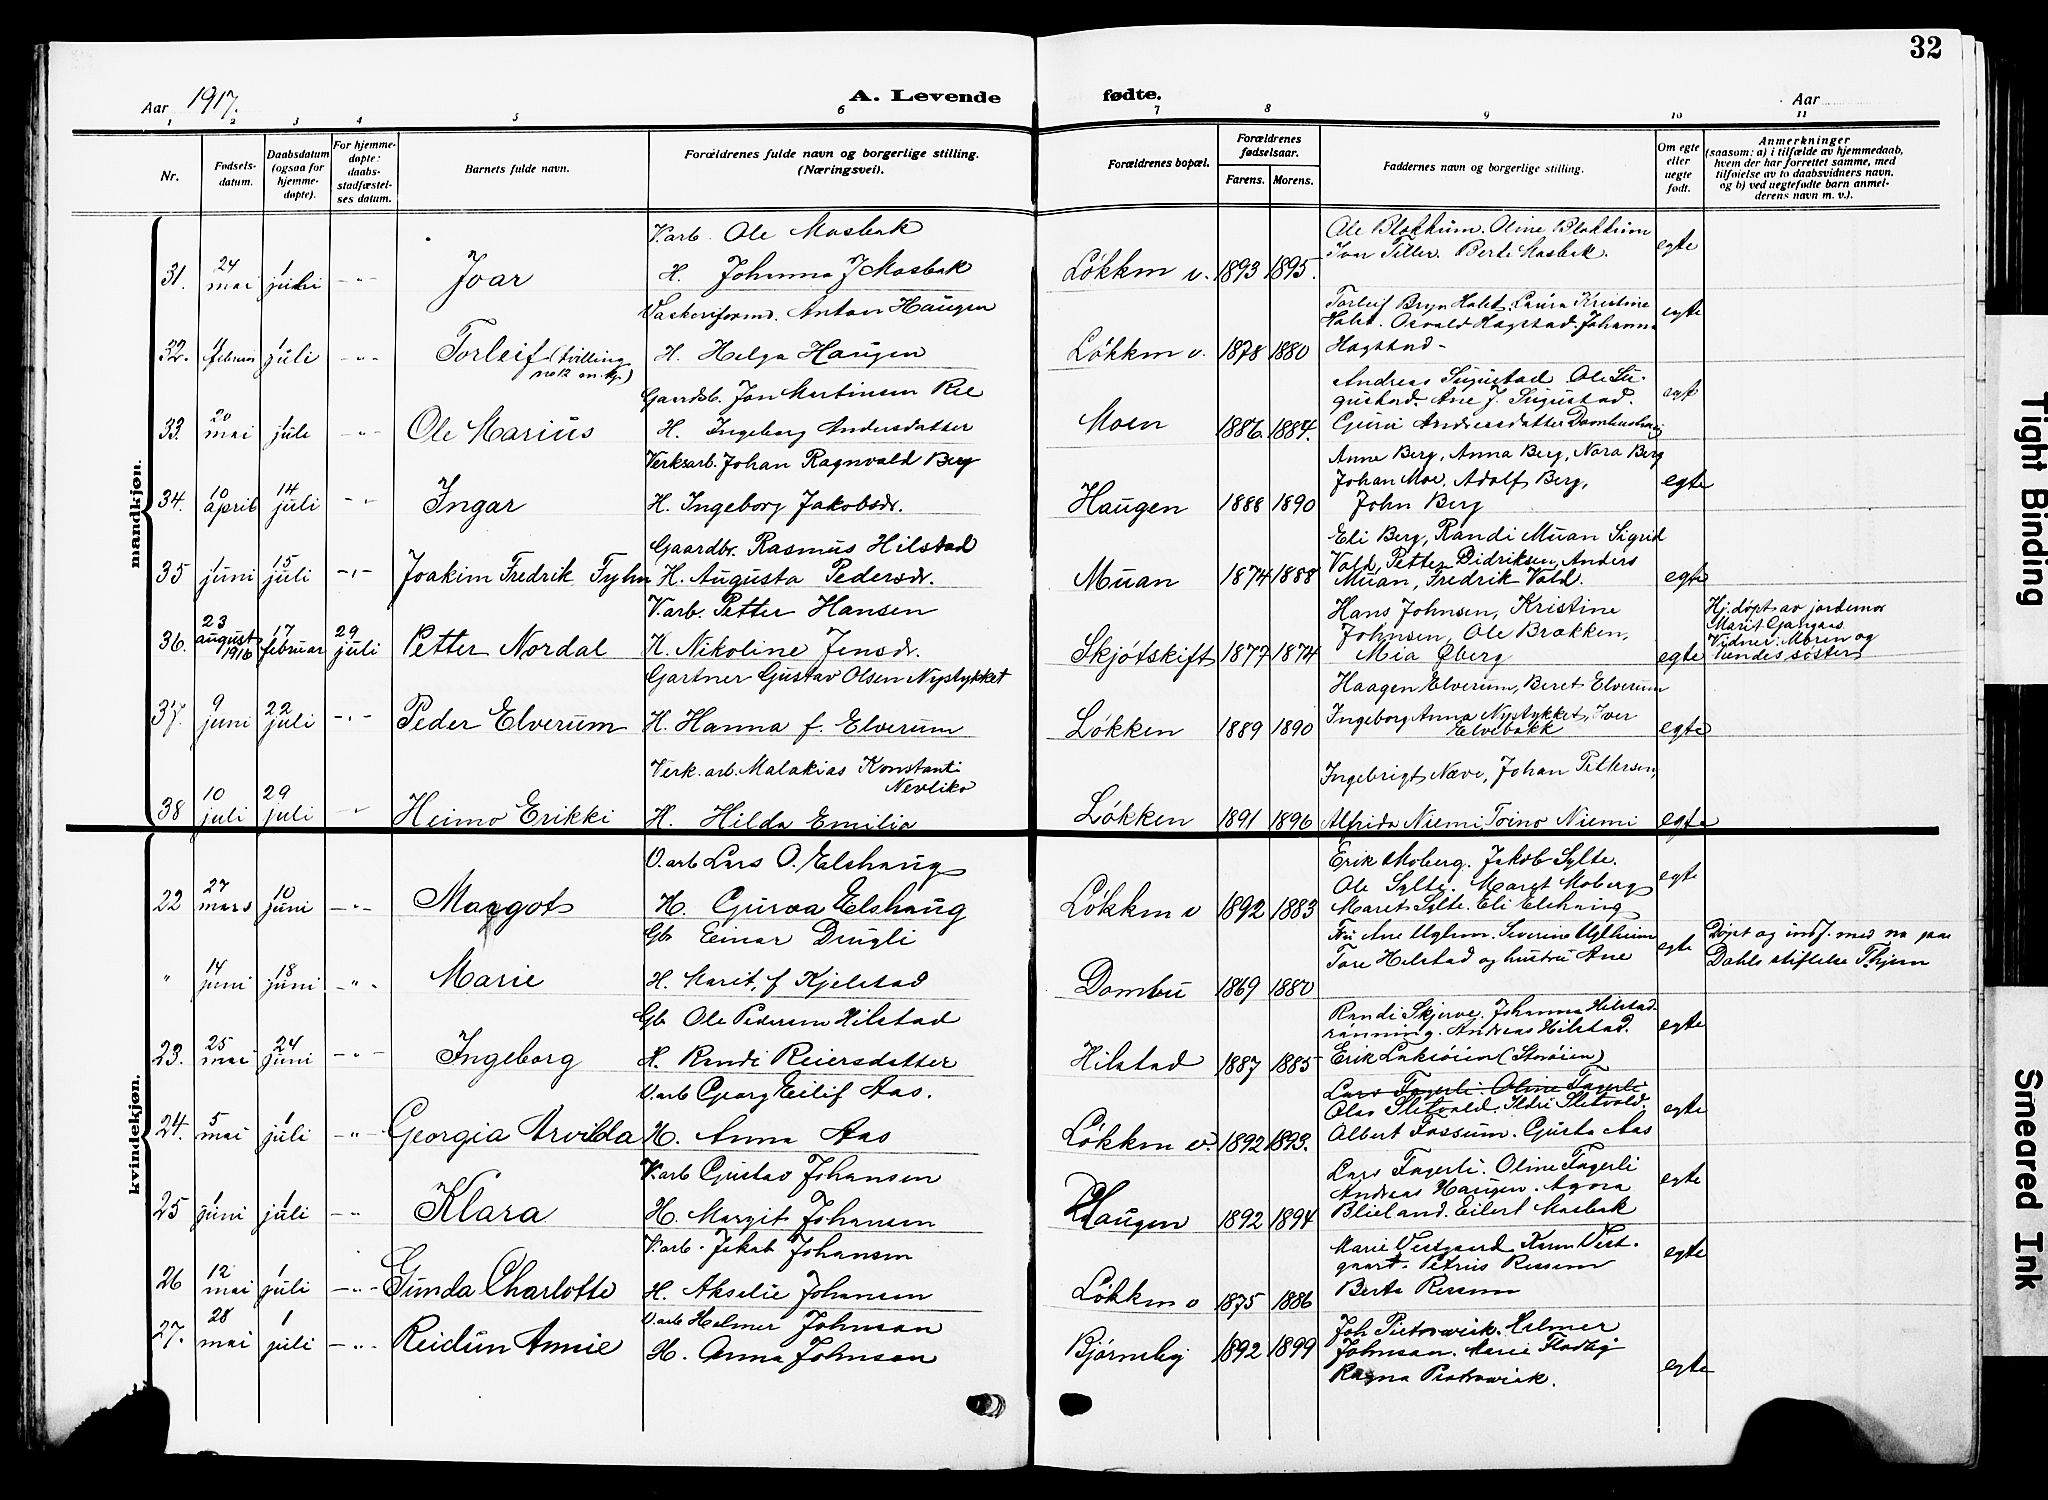 32
Aar 1917.
A. Levende fødte.
Aar
1 2 3 4 5 6 7 8 9 10 11
Nr.
Fødsels-
datum.
Daabsdatum
(ogsaa for
hjemme-
døpte).
For hjemme-
døpte:
daabs-
stadfæstel-
ses datum.
Barnets fulde navn.
Forældrenes fulde navn og borgerlige stilling.
(Næringsvei).
Forældrenes bopæl.
Forældrenes
fødselsaar.
Farens. Morens.
Faddernes navn og borgerlige stilling.
Om egte
eller
uegte
født.
Anmerkninger
(saasom: a) i tilfælde av hjemmedaab,
hvem der har forrettet samme, med
tilføielse av to daabsvidners navn,
og b) ved uegtefødte barn anmel-
derens navn m. v.).
mandkjøn.
31. 24 mai 1 juli -"- Ivar
V.arb. Ole Mosbak
H. Johanna J Mosbak
Løkken v. 1893 1895.
Ole Blokkum. Oline Blokkum
Ivar Tiller. Berte Mosbak.
egte
32. 1 februar 1 juli -"- Torleif (tvilling
no 12 m. kj.)
Vaskeriformd. Anton Haugen
H. Helga Haugen
Løkken v. 1878 1880
Torleif Bryn Holet. Laura Kristine
Holet. Osvald Hagstad. Johanna
Hagstad -
egte
33. 20 mai 1 juli -"- Ole Marius
Gaardbr. Jon Martinsen Ree
H. Ingeborg Andersdatter
Moen 1886 1884.
Andreas Sugustad Ole Su-
gustad. Ane J. Sugustad.
Guri Andreasdatter
egt
34. 10 april 14 juli -"- Ingar
Verksarb. Johan Ragnvald Berg
H. Ingeborg Jakobsdr.
Haugen 1888 1890
Anne Berg, Anna Berg, Nora Berg
Johan Moe, Adolf Berg,
John Berg
egte
35 1 juni 15 juli -"- Joakim Fredrik Fyhn
Gaardbr. Rasmus Hilstad
H. Augusta Pedersdr.
Muan 1874 1888
Eli Berg, Randi Muan Sigrid
Vold, Petter Didriksen, Anders
Muan, Fredrik Vold.
egte
36. 23 august 1916 17 februar 29 juli Petter Nordal
V.arb. Petter Hansen
H. Nikoline Jensdr.
Skjøtskift 1877 1874
Hans Johnsen, Kristine
Johnsen, Ole Brækken,
Mia Øberg
egte
Hj. døpt av jordemor
Marit Gangaas.
Vidner: Moren og
hendes søster
37. 9 juni 22 juli -"- Peder Elverum
Gartner Gustav Olsen Nystykket
H. Hanna f. Elverum
Løkken 1889 1890
Haagen Elverum, Beret Elverum
Ingeborg Anna Nystykket, Iver
Elvebakk
egte
38 10 juli 29 juli -"- Heimo Erikki
Verk.arb. Malakias Konstanti
Nevliko
H. Hilda Emilia
Løkken 1891 1896
Ingebrigt Næve, Johan Pettersen,
Alfrida Niemi, Toino Niemi
egte
kvindekjøn.
22 27 mars 10 juni -"- Margot
V.arb Lars O. Elshaug
H. Guroa Elshaug
Løkken v 1892 1883
Erik Moberg. Jakob Sylte.
Ole Sylte. Maret Moberg
Maret Sylte. Eli Elshaug
egte
" 14 juni 18 juni -"- Marie
Gb. Einar Drugli
H. Marit, f Kjelstad
Dombu 1869 1880
Fru Ane Uglem. Severine Uglheim
Tore Hilstad og hustru Ane
egte
Døpt og indf. med nr paa
Dahls stiftelse Thjem
23. 25 mai 24 juni -"- Ingeborg
Gb Ole Pedersen Hilstad
H. Randi Reiersdatter
Hilstad 1887 1885
Randi Skjerve. Johanna Hilstad-
rønning. Andreas Hilstad.
Erik Laksøien (Storøien)
egte
24. 5 mai 1 juli -"- Georgia Arvilda
V.arb Georg Eilif Aas.
H. Anna Aas
Løkken v. 1892 1893.
Lars Fagerli. Oline Fagerli
Olav Sletvold. Ildri Sletvold.
Albert Fossum. Gurta Aas
egte
25 1 juni 1 juli -"- Klara
V.arb Gustav Johansen
H. Margit Johansen
Haugen 1892 1894
Lars Fagerli. Oline Fagerli
Andreas Haugen. Agora
Blieland. Eilert Mosbak
egte
26 12 mai 1 juli -"- Gunda Charlotte
V.arb. Jakob Johansen
H. Akselie Johansen
Løkken v 1875 1886
Marie Vestgaard Karen Vest-
gaard. Petrus Ressem
Berta Ressem
egte
27. 28 mai 1 juli -"- Reidun Annie
V.arb Helmer Johnson
H. Anna Johnson
Bjørneby 1892 1899
Joh Pietrowiak. Helmer
Johnson. Marie Flodby
Ragna Pietrowiak.
egte
Tight Binding
Smeared Ink